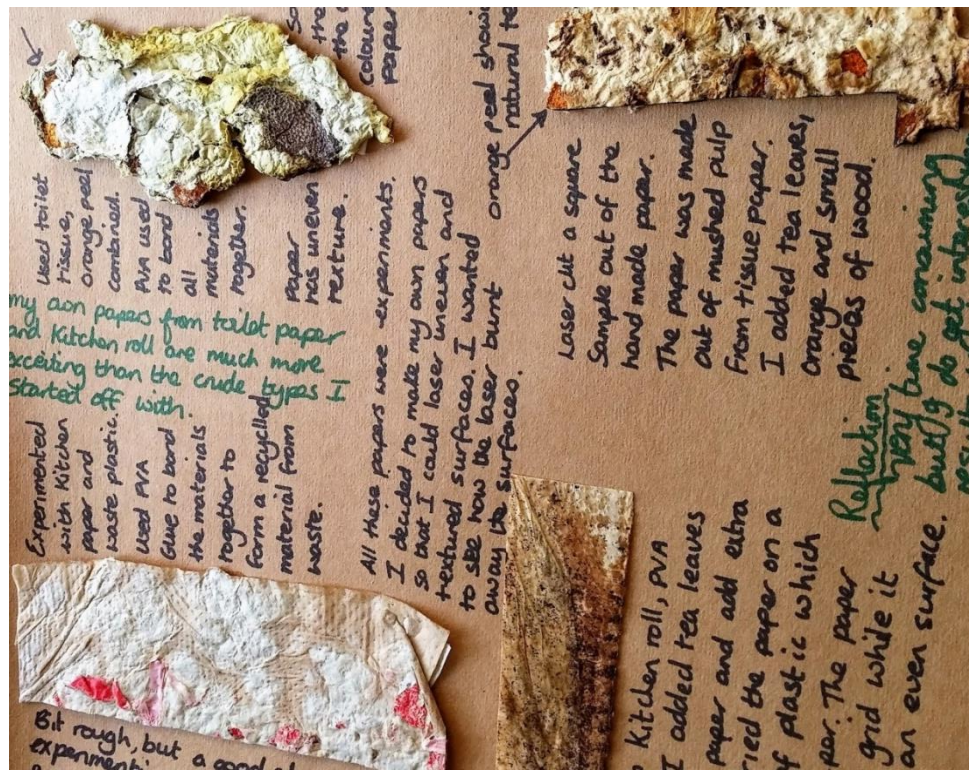 so
the
the
coloured
paper
orange peel showi
natural te
Used toilet
tissue,
orange peel
combined.
PVA used
to bond
all
materials
together.
Paper
has uneven
texture.
my aon papers from toilet paper
and Kitchen roll are much more
exciting than the crude types I
started off with.
Experimented
with Kitchen
paper and
waste plastic.
Used PVA
Glue to bond
the materials
together to
form a recyclled
material from
waste.
All these papers were experiments.
I decided to make my own papers
so that I could laser uneven and
textured surfaces. I wanted
to see how the laser burnt
away the surfaces.
Laser cut a square
Sample out of the
hand made paper.
The paper was made
out of mushed pulp
From tissue paper.
I added tea leaves,
orange and small
pieces of wood.
Reflection
Very time consuming
but do get interest
Kitchen roll, PVA
I added tea leaves
paper and add extra
ried the paper on a
f plastic which
per. The paper
grid while it
an even surface.
Bit rough, but a good
experimenti